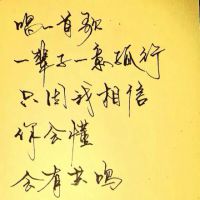 唱一首歌
一辈子一意孤行
只因我相信
你会懂
会有共鸣